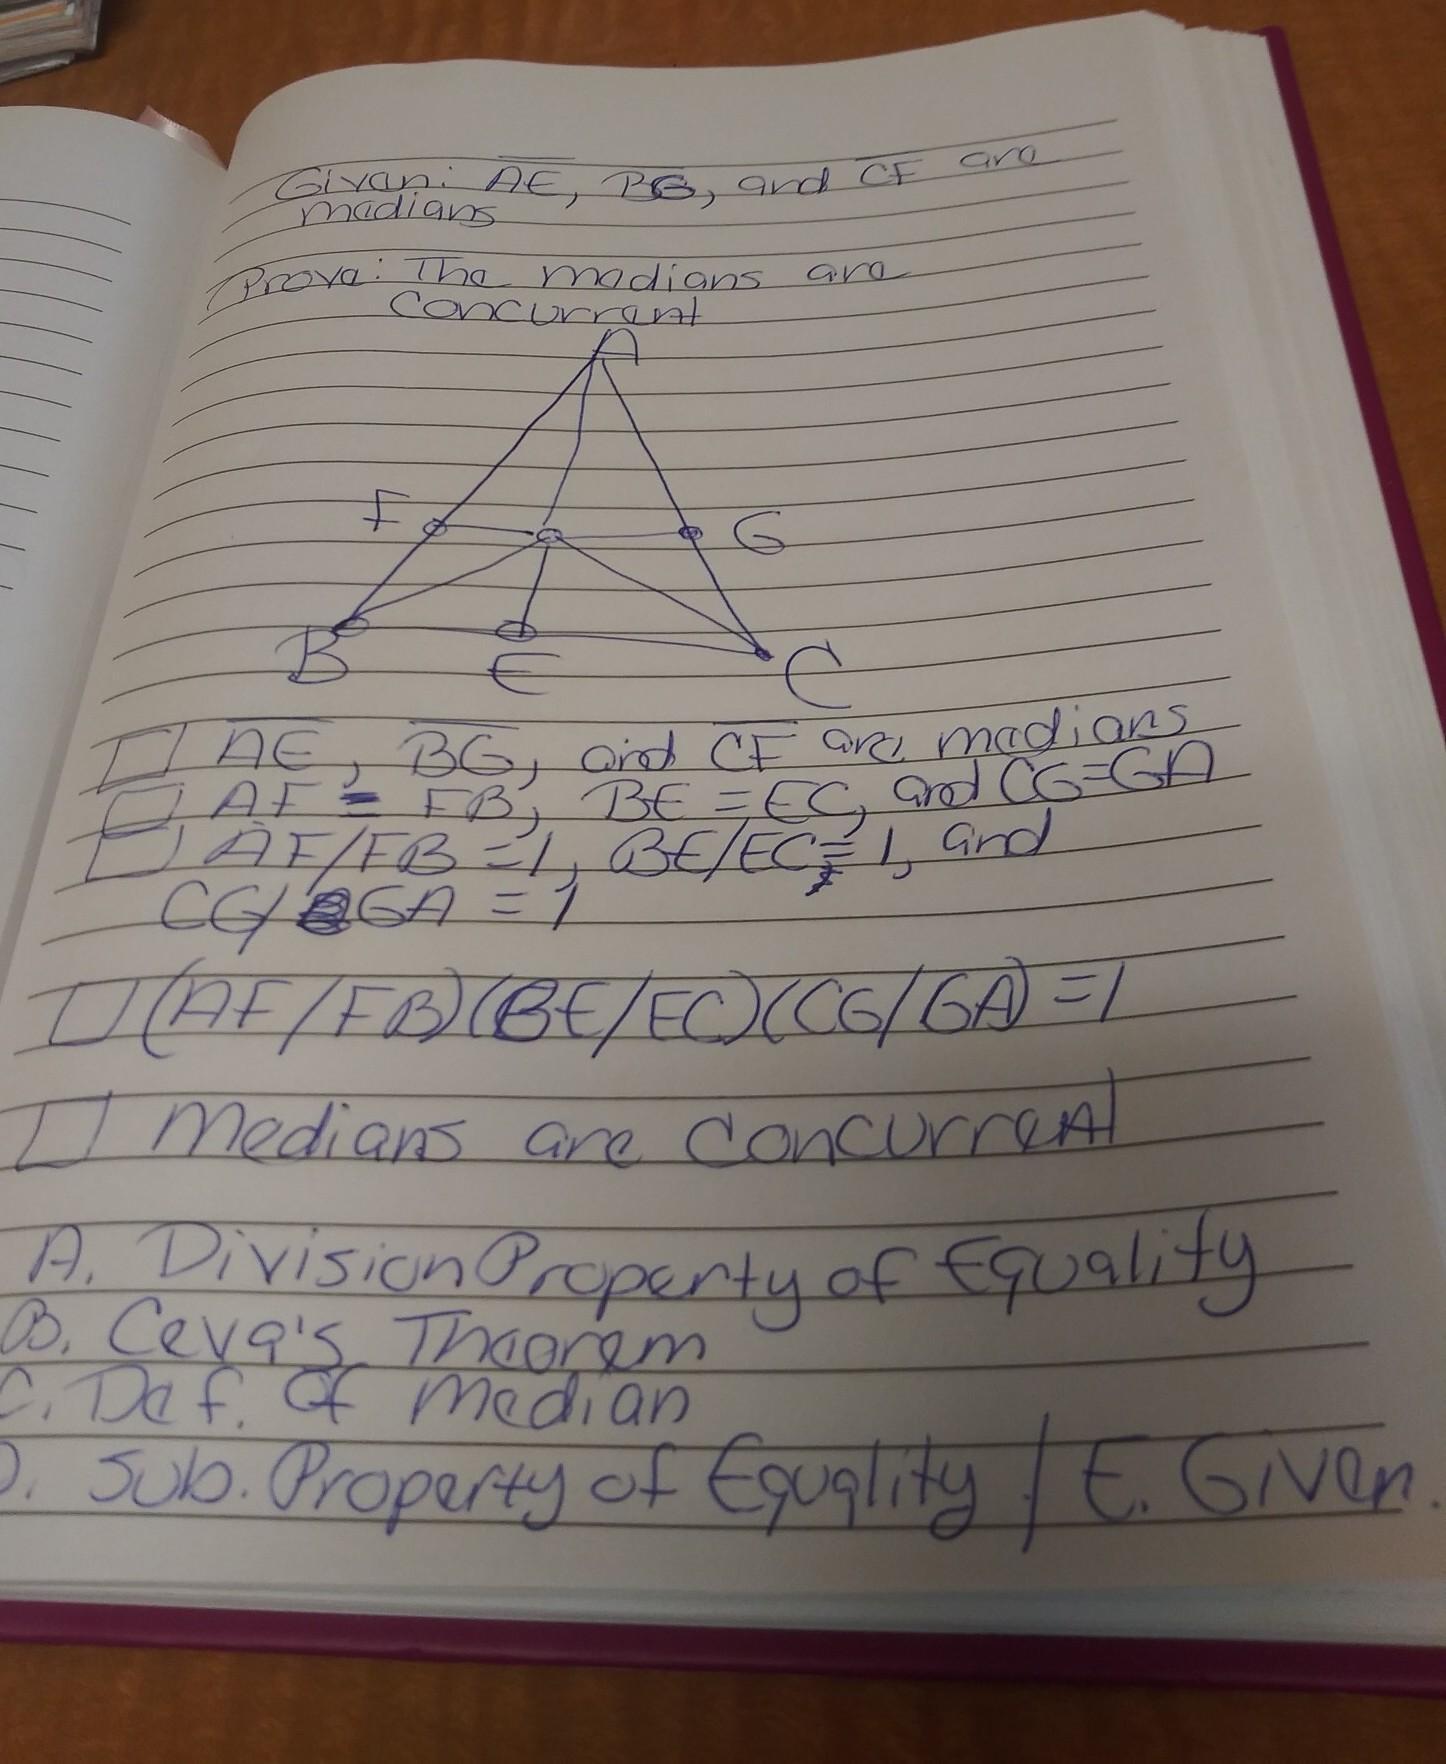 Given: AE, BG, and CF are
medians
Prove: The medians are
concurrent
A
F
G
B
E
C
AE, BG, and CF are medians
AF = FB, BE = EC, and CG=GA
AF/FB =1, BE/EC = 1, and
CG/GA = 1
(AF/FB)(BE/EC)(CG/GA) =1
Medians are concurrent
A. Division Property of Equality
B. Ceva's Theorem
C. Def. of median
D. Sub. Property of Equality / E. Given.